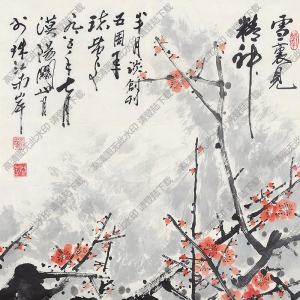 雪裏見
精神
半月談創刊
五周年
誌慶
一九八五年七月
漠陽關山月
於珠江南岸